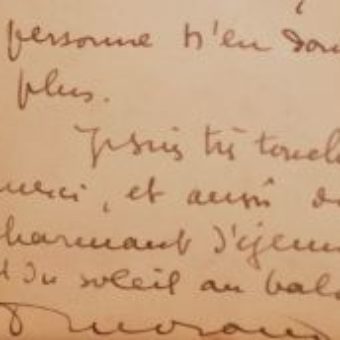 personne n'en dou
plus.
Je suis très touch
merci, et aussi d
charmant déjeun
du soleil au balc
Morand